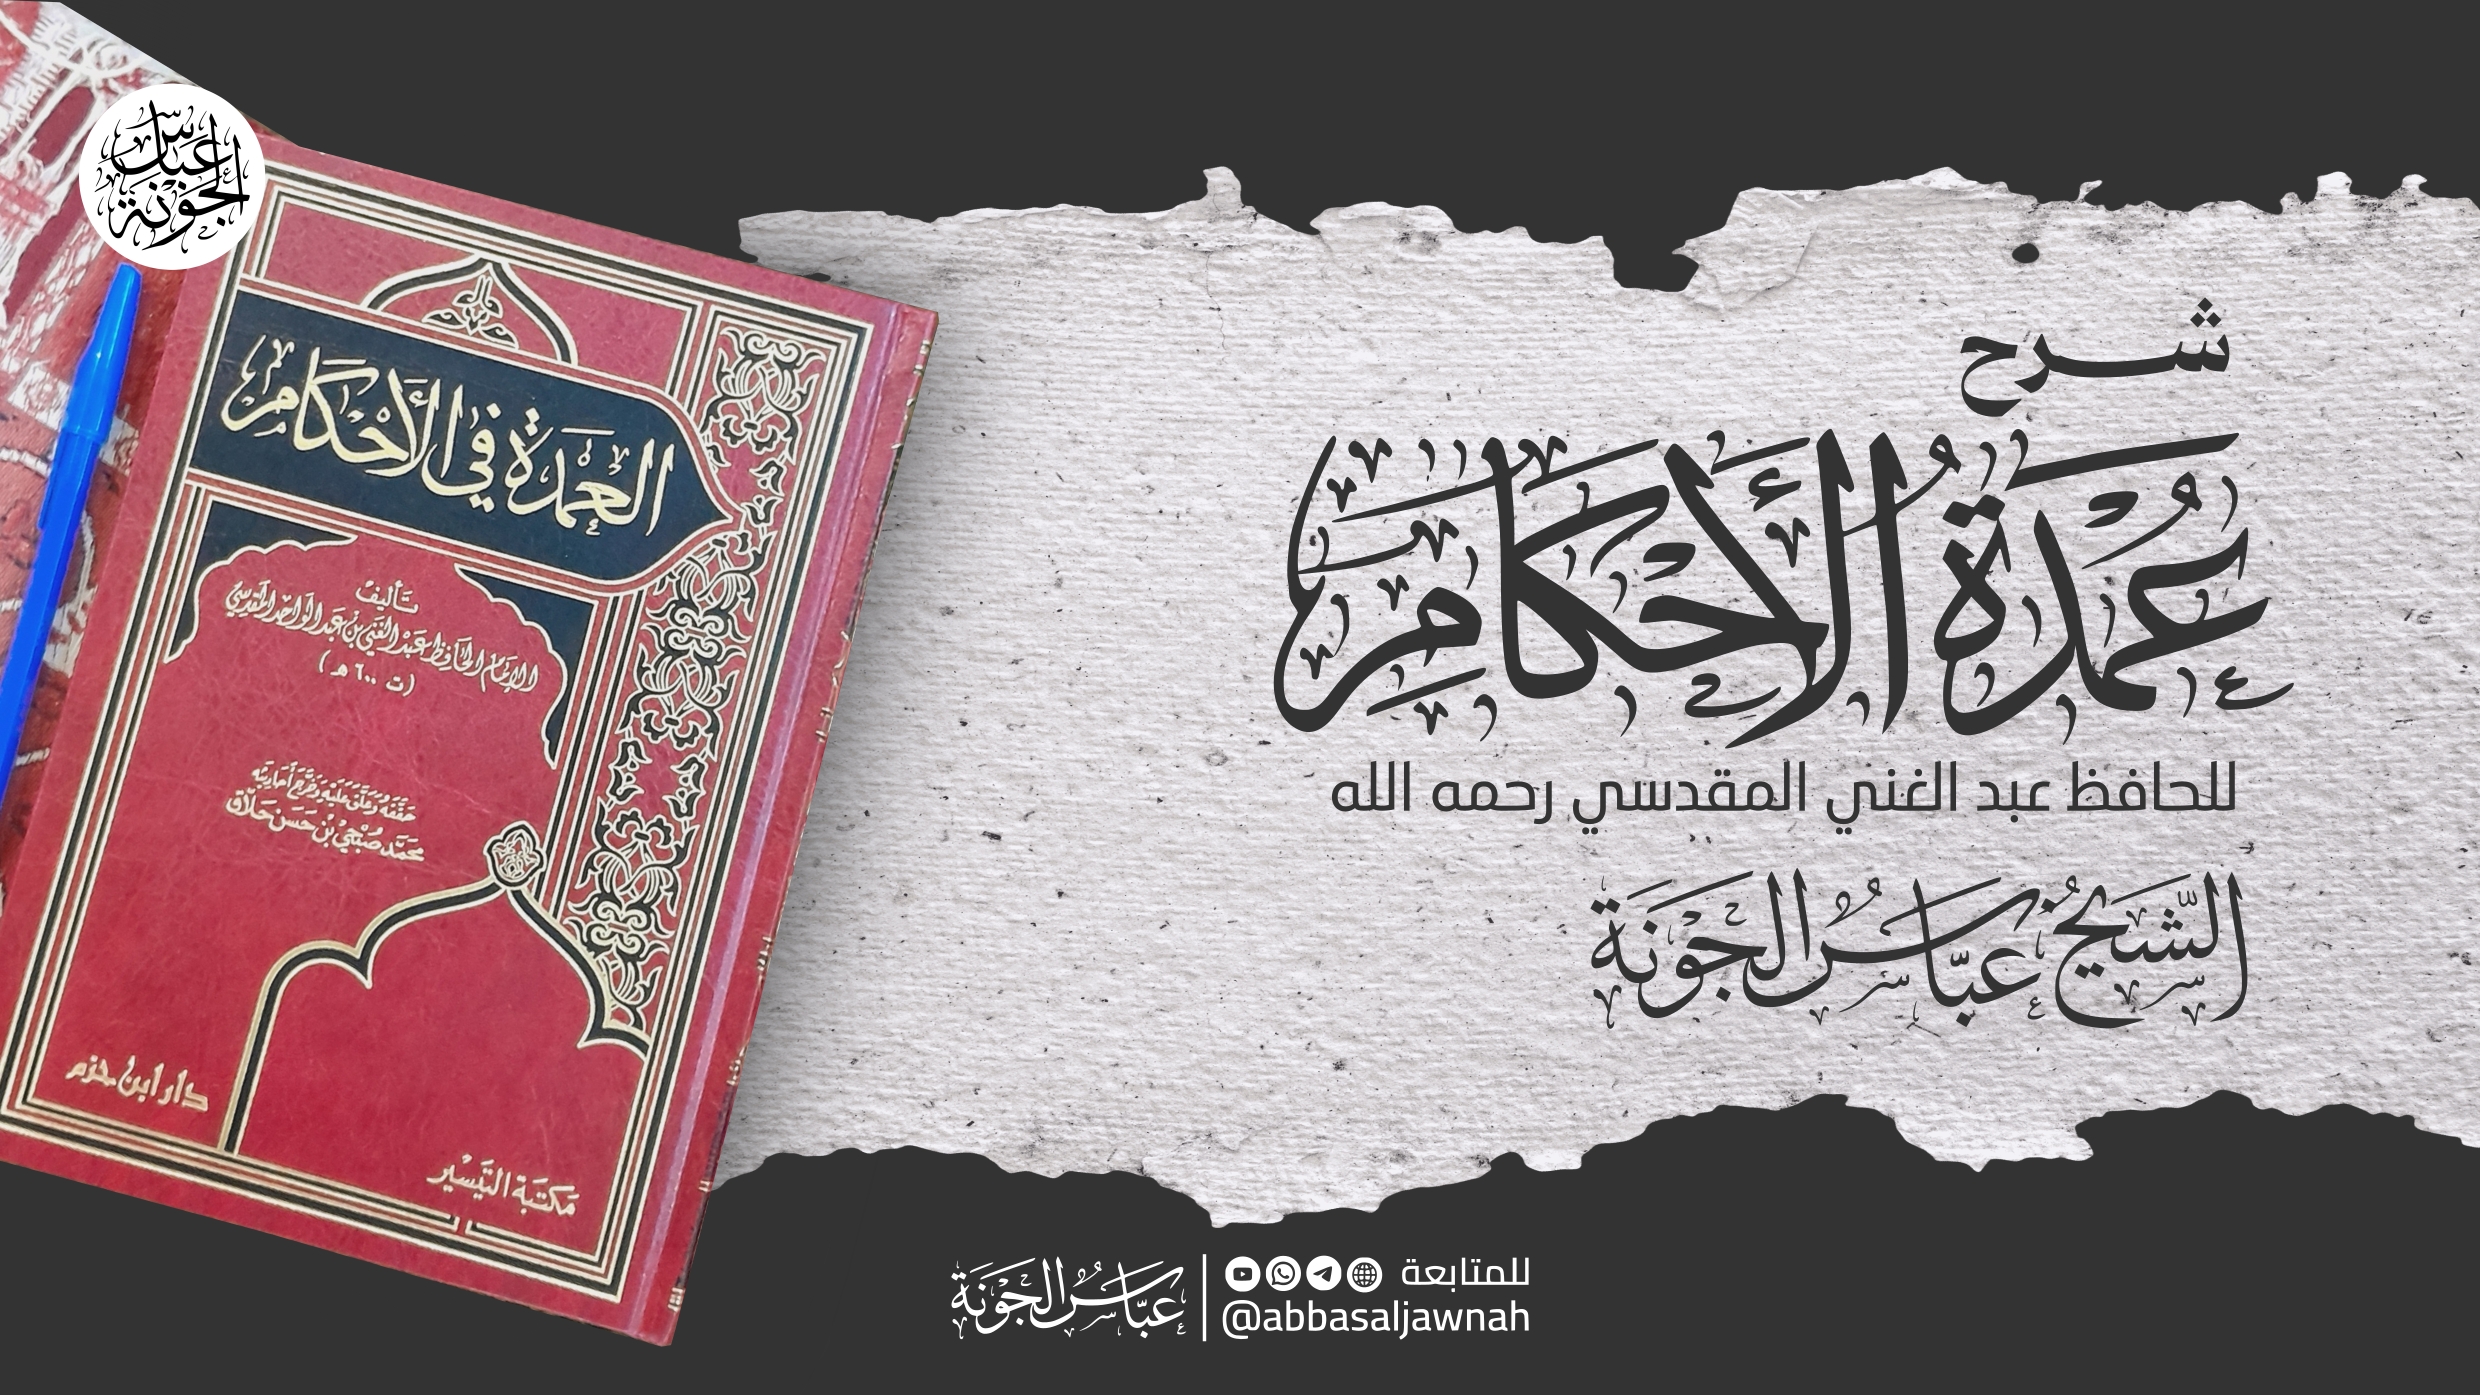 شرح
عُمْدَةُ الأَحْكَامِ
للحافظ عبد الغني المقدسي رحمه الله
الشَّيْخُ عَبَّاسُ الجَوْنَة
عباس
الجونة
العمدة في الأحكام
تأليف
الإمام الحافظ عبد الغني بن عبد الواحد المقدسي
(ت ٦٠٠ هـ)
حققه وعلق عليه وخرج أحاديثه
محمد صبحي بن حسن حلاق
دار ابن حزم
مكتبة التيسير
للمتابعة
@abbasaljawnah
عَبَّاسُ الجَوْنَة